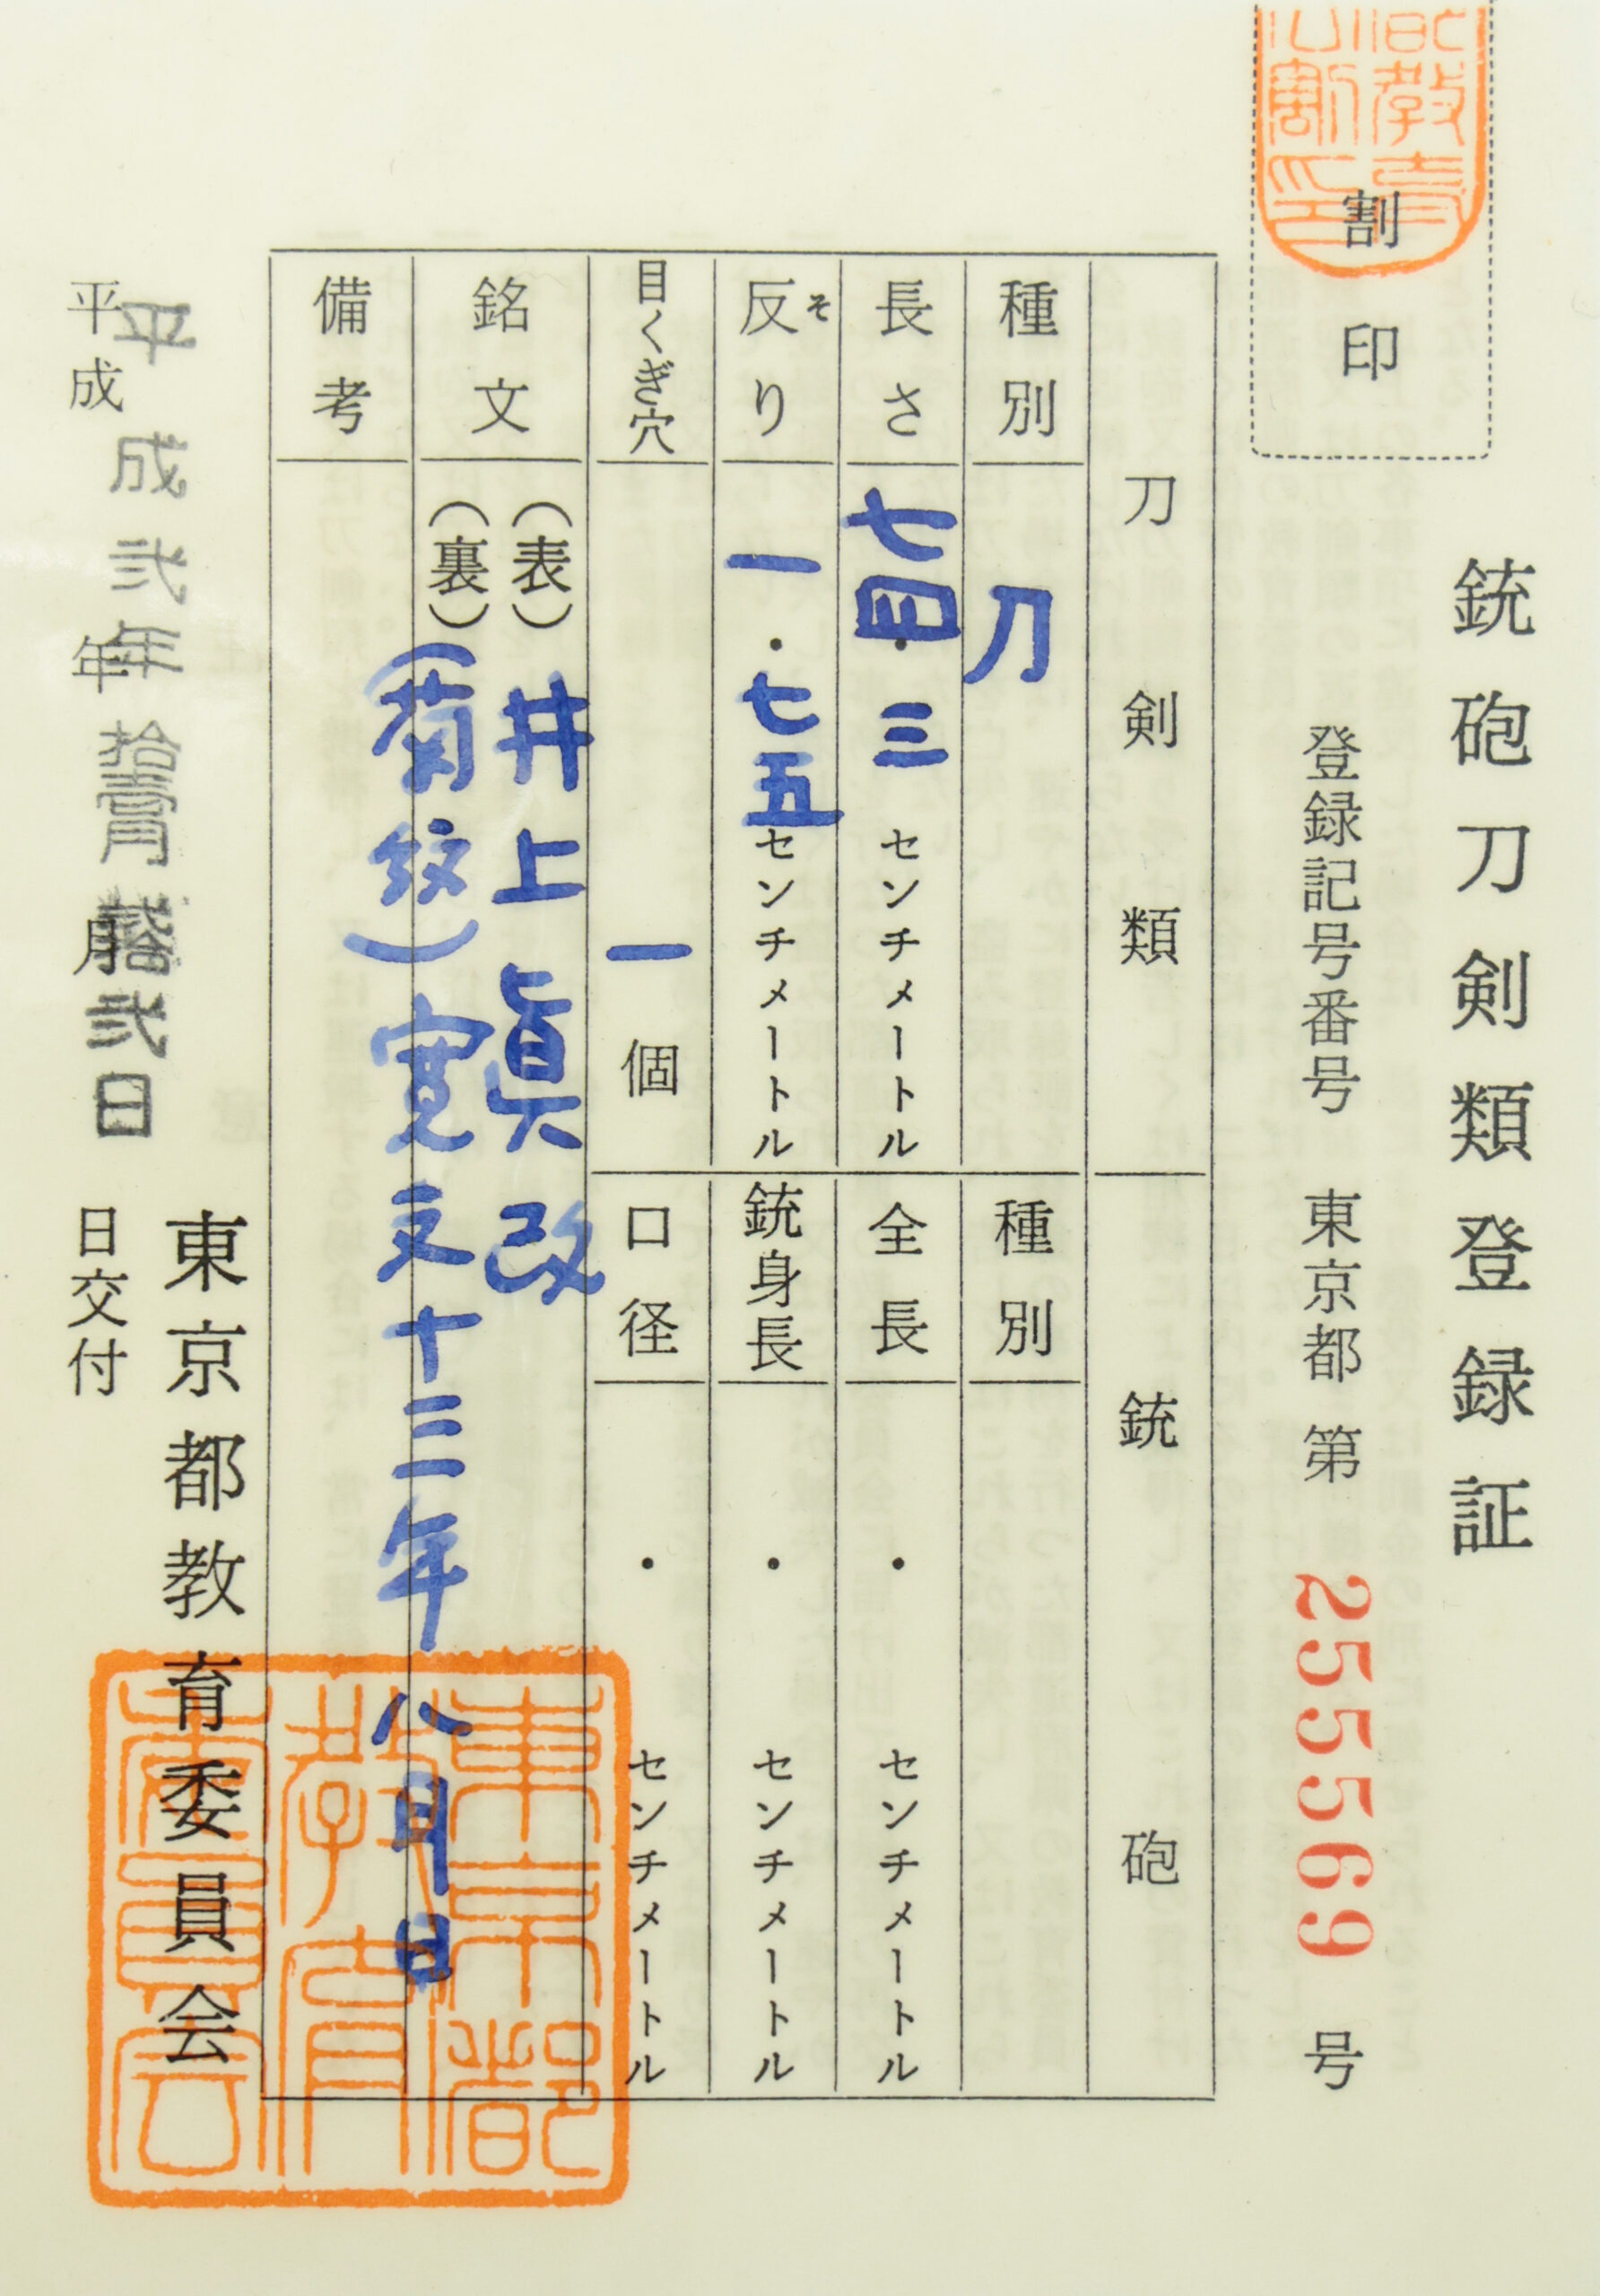 銃砲刀剣類登録証
割印
登録記号番号 東京都 第 255569 号
刀剣類
銃砲
種別 刀
種別
長さ 七四・三 センチメートル
全長 ・ センチメートル
反り 一・七五 センチメートル
そ
銃身長 ・ センチメートル
目くぎ穴 一個
口径 ・ センチメートル
銘文 (表) 井上眞改
(裏) (菊紋) 寛文十三年八月日
備考
東京都教育委員会
平成 年 月 日交付
平成弐年拾壹月 弐日
東京都教育委員会